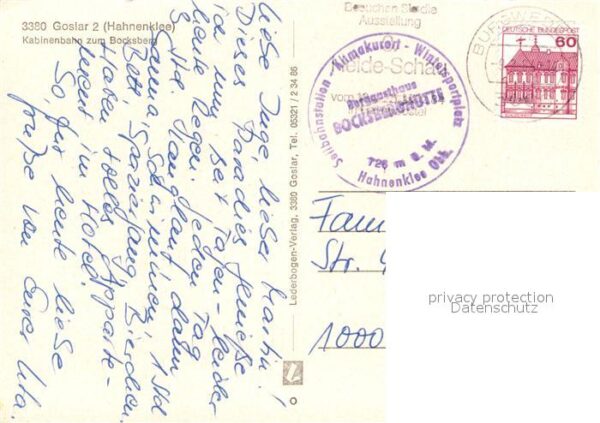 3380 Goslar 2 (Hahnenklee)
Kabinenbahn zum Bocksberg
Liebe Inge, lieber Martin!
Dieses Paradies genieße
ich nun seit Tagen - leider
heute Regen. Jeden Tag
Std. Langlauf, dann
Sauna, Schwimmen, 1 Std
Bett, Spaziergang, Bierchen
Haben tolles Apparte-
ment im Hotel.
So, für heute liebe
Grüße von Eurer Uta.
Lederbogen-Verlag, 3380 Goslar, Tel. 05321 / 2 34 86
Besuchen Sie die
Ausstellung
Heide-Schau
Seilbahnstation - Klimakurort - Wintersportplatz
Berggasthaus
BOCKSBERGHÜTTE
726 m ü. M.
Hahnenklee Obh.
DEUTSCHE BUNDESPOST
60
Str.
1000
privacy protection
Datenschutz